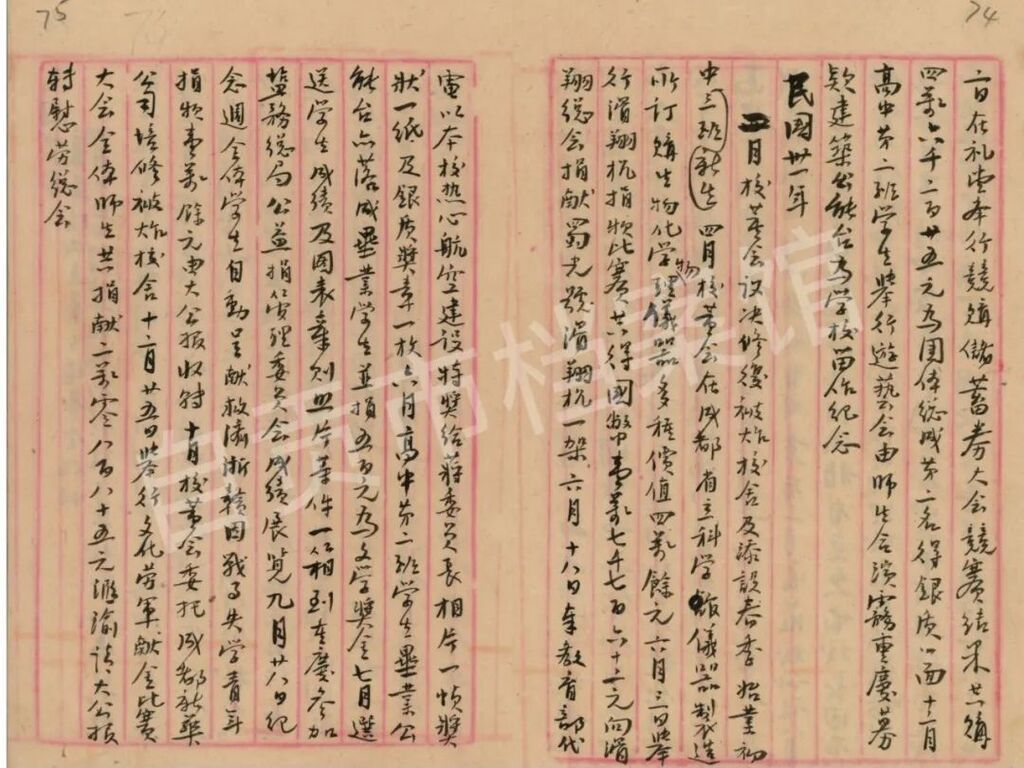 74
二日在礼堂举行竞购储蓄券大会競赛结果共购
四萬六千二百廿五元为团体总成第二名得银质公面十一月
高中第二班学生举行遊艺会由师生合演霧重慶募
欵建築公能台为学校留作纪念
民国卅一年
二月校董会议决修復被炸校舍及添設春季始業初
中三班新生四月校董会在成都省立科学館儀器製造
所订购生物化学物理儀器多种價值四萬餘元六月三日举
行滑翔机捐欵比赛共得国幣壹萬七千七百六十三元向滑
翔总会捐献蜀光號滑翔机一架六月十八日奉教育部代
75
電以本校热心航空建设特奬给蒋委员长相片一幀奬
狀一纸及銀质奬章一枚六月高中第二班学生畢業公
能台亦落成畢業学生並捐五百元为文学奬金七月選
送学生成绩及图表章则照片等件一箱到重慶参加
盐務总局公益捐管理委员会成绩展览九月廿八日纪
念週全体学生自動呈献救濟浙贛因戰事失学青年
捐欵壹萬餘元由大公报收转十月校董会委托成都新華
公司培修被炸校舍十二月廿五日举行文化劳军献金比赛
大会全体师生共捐献二萬零八百八十五元滙渝請大公报
转慰劳总会
自贡市档案馆